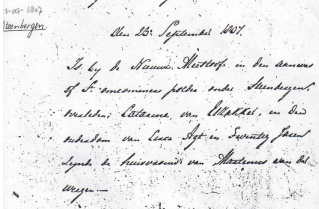 -09-1807
Steenbergen
Den 23e September 1807.
Is by de Nieuwe in den
of St. polder onder Steenbergen,
overleden; Catarina van en Den
ouderdom van Sess Agt en Twentig Jaren
Zynde de huisvrouw van Martinus van der
wegen —